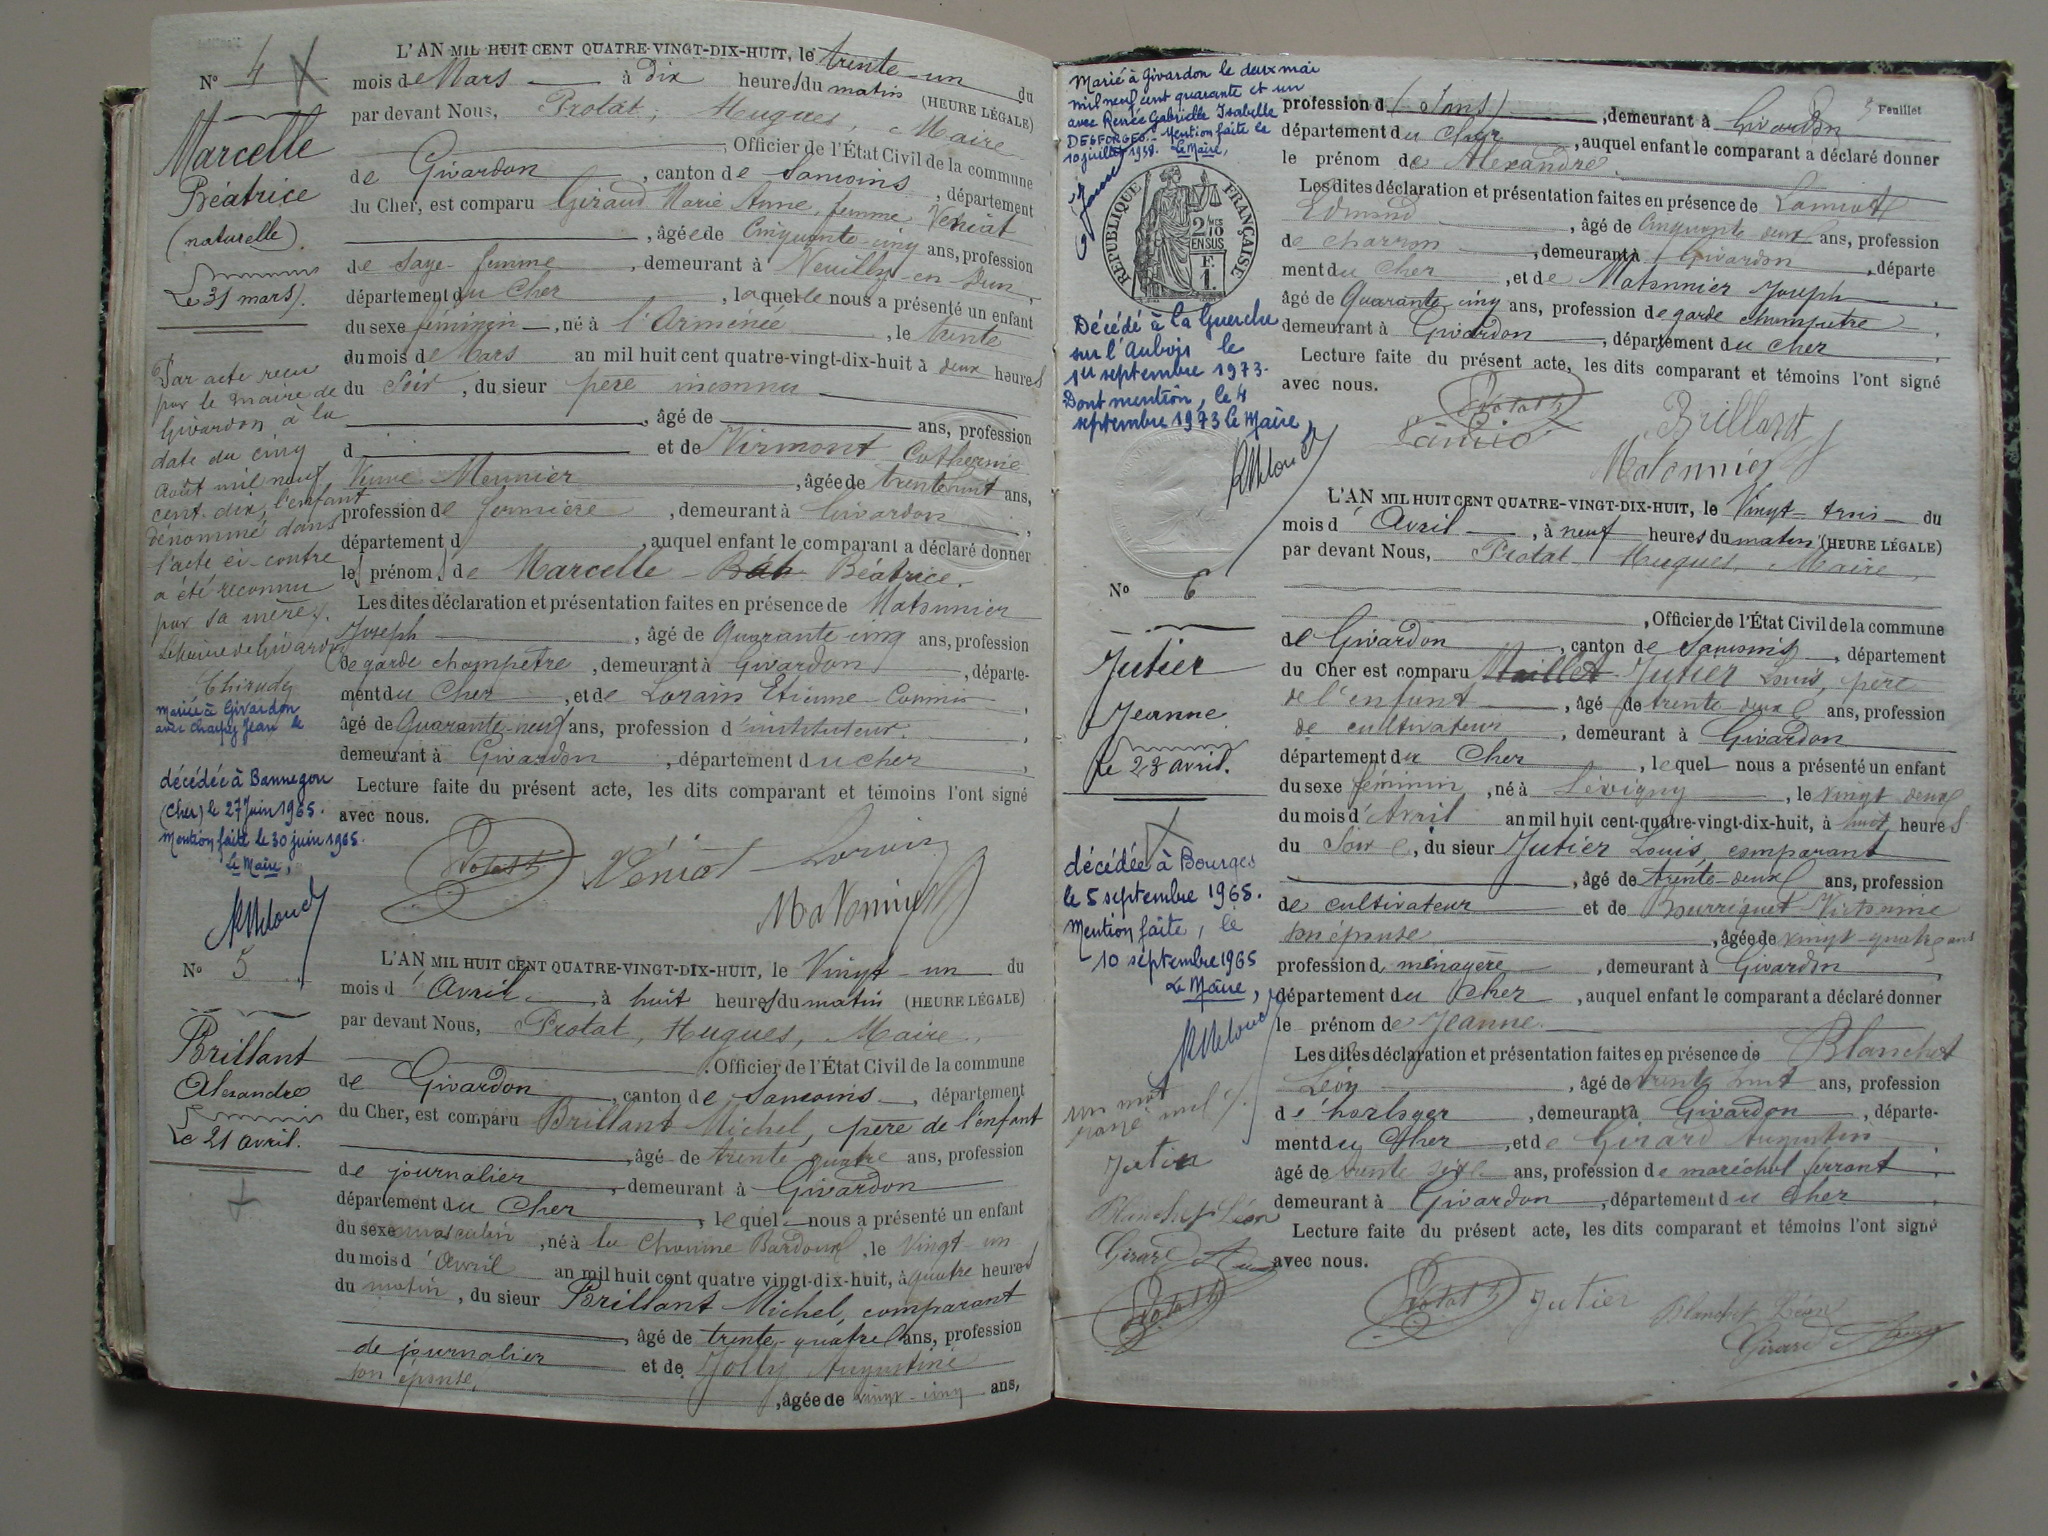 N° 4
Marcelle
Béatrice
(naturelle).
Le 31 mars.
Par acte reçu
par le maire de
Givardon à la
date du cinq
Août mil neuf
cent dix, l'enfant
dénommé dans
l'acte ci-contre
a été reconnu
par sa mère.
Le Maire de Givardon
mariée à Givardon
avec Jean le
décédée à Bannegon
(Cher) le 27 Juin 1965.
Mention faite le 30 juin 1965.
Le Maire,
L'AN MIL HUIT CENT QUATRE-VINGT-DIX-HUIT, le trente-un du
mois de Mars à dix heures du matin (HEURE LÉGALE)
par devant Nous, Protat, Hugues, Maire
, Officier de l'État Civil de la commune
de Givardon, canton de Sancoins, département
du Cher, est comparu Giraud Marie Anne, femme Véniat
, âgée de Cinquante-cinq ans, profession
de Sage-femme, demeurant à Neuilly-en-Dun,
département du Cher, laquelle nous a présenté un enfant
du sexe féminin, né à l'Arménée, le trente
du mois de Mars an mil huit cent quatre-vingt-dix-huit à deux heures
du Soir, du sieur père inconnu
, âgé de ans, profession
d et de Virmont Catherine
Veuve Meunier, âgée de trente huit ans,
profession de fermière, demeurant à Givardon,
département d , auquel enfant le comparant a déclaré donner
les prénoms de Marcelle - Béatrice.
Les dites déclaration et présentation faites en présence de Matonnier
Joseph, âgé de Quarante-cinq ans, profession
de garde champêtre, demeurant à Givardon, départe-
ment du Cher, et de Lorain Etienne
âgé de Quarante-neuf ans, profession d'instituteur,
demeurant à Givardon, département du cher,
Lecture faite du présent acte, les dits comparant et témoins l'ont signé
avec nous.
Protat h Véniat Lorain
Matonnier
N° 5
Brillant
Alexandre
Le 21 avril.
L'AN MIL HUIT CENT QUATRE-VINGT-DIX-HUIT, le Vingt-un du
mois d'Avril à huit heures du matin (HEURE LÉGALE)
par devant Nous, Protat, Hugues, Maire,
. Officier de l'État Civil de la commune
de Givardon, canton de Sancoins, département
du Cher, est comparu Brillant Michel, père de l'enfant
, âgé de trente quatre ans, profession
de journalier, demeurant à Givardon
département du Cher, lequel nous a présenté un enfant
du sexe masculin, né à la Chaume Bardoux, le Vingt-un
du mois d'Avril an mil huit cent quatre vingt-dix-huit, à quatre heures
du matin, du sieur Brillant Michel, comparant
, âgé de trente-quatre ans, profession
de journalier et de Jolly Augustine
son épouse, , âgée de vingt-cinq ans,
Marié à Givardon le deux mai
mil neuf cent quarante et un
avec Renée Gabrielle Isabelle
DESFORGES. Mention faite le
10 juillet 1958. Le Maire,
RÉPUBLIQUE FRANÇAISE
2/10
EN SUS
F.
1.
Décédé à la Guerche
sur l'Aubois le
1er septembre 1973.
Dont mention, le 4
septembre 1973 Le Maire,
5 Feuillet
profession d (Sans), demeurant à Givardon
département du Cher, auquel enfant le comparant a déclaré donner
le prénom de Alexandre.
Les dites déclaration et présentation faites en présence de
Edmond, âgé de Cinquante deux ans, profession
de charron, demeurant à Givardon, départe
ment du Cher, et de Matonnier Joseph,
âgé de Quarante cinq ans, profession de garde champetre,
demeurant à Givardon, département du Cher,
Lecture faite du présent acte, les dits comparant et témoins l'ont signé
avec nous.
Protat h Brillant
Matonnier
N° 6
Jutier
Jeanne
Le 23 avril.
décédée à Bourges
le 5 septembre 1965.
Mention faite, le
10 septembre 1965
Le Maire,
un mot
rayé nul
Jutier
Blanchet Léon
Girard
Protat h
L'AN MIL HUIT CENT QUATRE-VINGT-DIX-HUIT, le Vingt-trois du
mois d'Avril, à neuf heures du matin (HEURE LÉGALE)
par devant Nous, Protat Hugues, Maire,
, Officier de l'État Civil de la commune
de Givardon, canton de Sancoins, département
du Cher est comparu Maillet Jutier Louis, père
de l'enfant, âgé de trente-deux ans, profession
de cultivateur, demeurant à Givardon
département du Cher, lequel nous a présenté un enfant
du sexe féminin, né à Lévigny, le vingt deux
du mois d'Avril an mil huit cent-quatre-vingt-dix-huit, à huit heures
du Soir, du sieur Jutier Louis, comparant
, âgé de trente-deux ans, profession
de cultivateur et de Bourriquet Victorine
son épouse, âgée de vingt-quatre ans
profession d ménagère, demeurant à Givardon,
département du Cher, auquel enfant le comparant a déclaré donner
le prénom de Jeanne.
Les dites déclaration et présentation faites en présence de Blanchet
Léon, âgé de trente huit ans, profession
d'horloger, demeurant à Givardon, départe-
ment du Cher, et de Girard Augustin
âgé de trente six ans, profession de maréchal ferrant,
demeurant à Givardon, département du Cher,
Lecture faite du présent acte, les dits comparant et témoins l'ont signé
avec nous.
Protat h Jutier Blanchet Léon
Girard